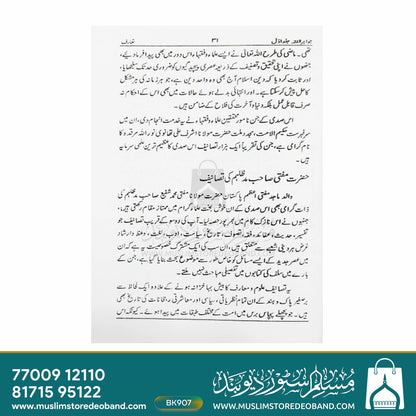 جواہر الفقہ جلد اوّل ۳۱ تعارف
تھی۔ ماضی کی طرح اللہ تعالیٰ نے ایسے علماء و فقہاء اس دور میں بھی پیدا فرمادیئے،
جنھوں نے اپنی تحقیق و تصنیف کے ذریعہ عصری پیچیدگیوں کو ضروری حد تک سلجھایا،
اور ثابت کر دیا کہ دین اسلام آج بھی وہ واحد دین ہے، جو ہر زمانہ کی ہر مشکل
کا حل پیش کر سکتا ہے۔ اور انتہائی بدلے ہوئے حالات میں بھی اس کے احکام نہ
صرف قابل عمل بلکہ دنیا و آخرت کی فلاح کے ضامن ہیں۔
اس صدی کے جن نامور محققین علماء و فقہاء نے یہ خدمت انجام دی، ان میں
سرفہرست حکیم الامت، مجدد ملت حضرت مولانا اشرف علی تھانوی نور اللہ مرقدہ کا
نام گرامی ہے، جن کی تقریباً ایک ہزار تصانیف اس صدی کا عظیم ترین علمی سرمایہ
ہیں۔
حضرت مفتی صاحب مدظلہم کی تصانیف
والد ماجد مفتی اعظم پاکستان حضرت مولانا مفتی محمد شفیع صاحب مدظلہم کی
ذات گرامی بھی اس صدی کے ان خوش بخت علماء کرام میں ممتاز مقام رکھتی ہے،
جنہوں نے اس نازک کام میں بھرپور حصہ لیا۔ آپ کی دو سو کے قریب تصانیف جو
تفسیر، حدیث، عقائد، فقہ، تصوف، تاریخ، سیاست، ادب، لغت، وعظ و ارشاد
غرض ہر دینی شعبے سے متعلق ہیں، ان سب کی ایک مشترک خصوصیت یہ ہے کہ ان
میں عصر جدید کے ایسے مسائل کو خاص طور سے موضوع بحث بنایا گیا ہے، جن کے
بارے میں سلف کی کتابوں میں تفصیلی مباحث نہیں ملتے۔
یہ تصانیف علوم و معارف کا بیش بہا خزانہ ہونے کے علاوہ ایک لحاظ سے
برصغیر پاک و ہند کے ان تمام نظریاتی، سیاسی اور معاشرتی رجحانات کی تاریخ بھی
ہیں۔ جو پچھلے پچاس برس میں امت کے مختلف طبقات میں پیدا ہوئے۔ کیونکہ اس
77009 12110
81715 95122
BK907
مسلم اسٹور دیوبند
www.muslimstoredeoband.com
www.muslimstoredeoband.com